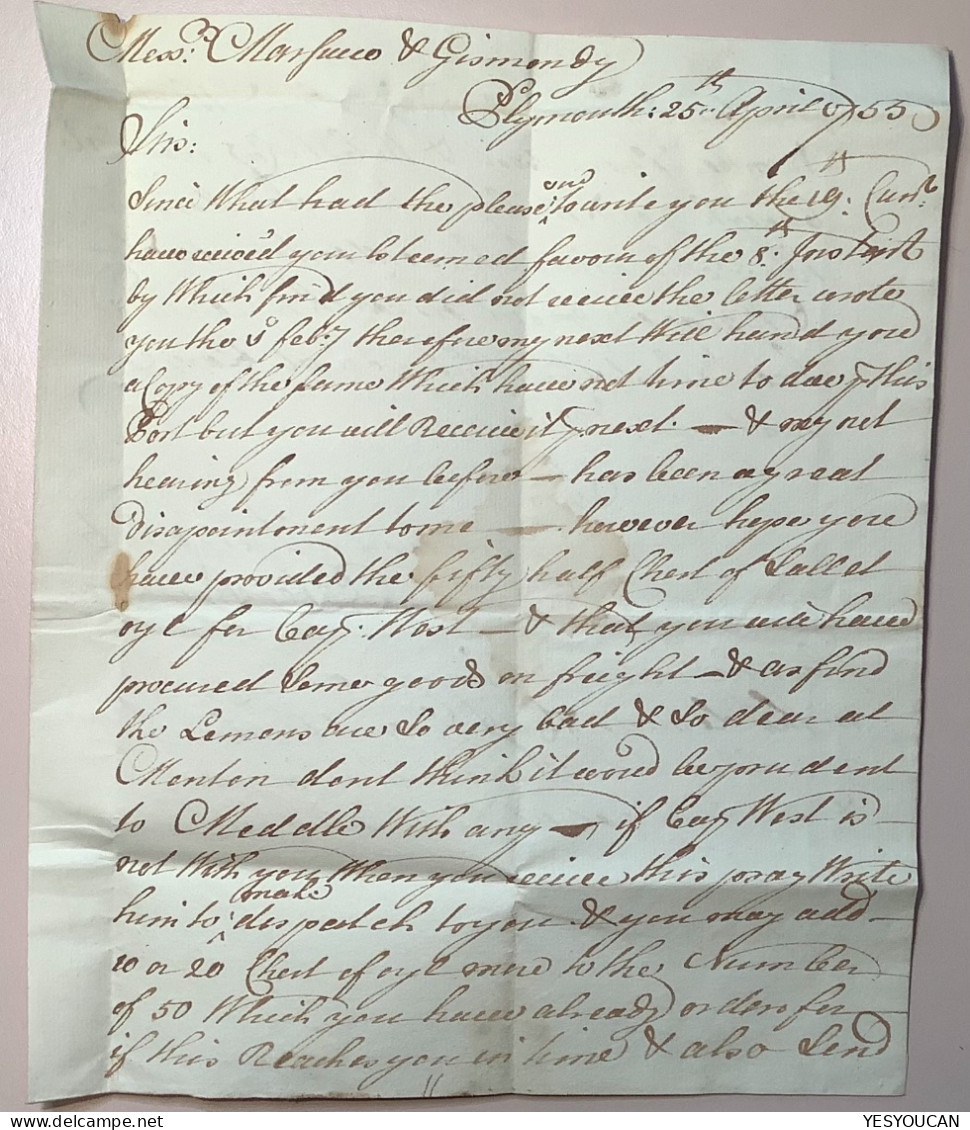 Mess.rs Marsucco & Gismondy
Plymouth: 25th April 1755
Sirs:
Since What had the pleasure to write you the 19th Currt
have receiv'd your Esteemed favour of the 8th Instant
by Which find you did not receive the letter wrote
you the Feb.y therefore my next Will hand you
a Copy of the same Which have not time to doe p this
Post but you will Receive it p next — & my not
hearing from you before — has been a great
Disapointment to me — however hope you
have provided the fifty half Chest of Sallet
oyl for Cap. West — & that you will have
procured Some goods on freight — & as find
the Lemons are So very bad & So dear at
Menton dont think it would be prudent
to Meddle With any — if Cap West is
not With you When you receive this pray Write
him to make dispatch to you & you may add
10 or 20 Chest of oyl more to the Number
of 50 Which you have already orders for
if this Reaches you in time & also Send
YESYOUCAN